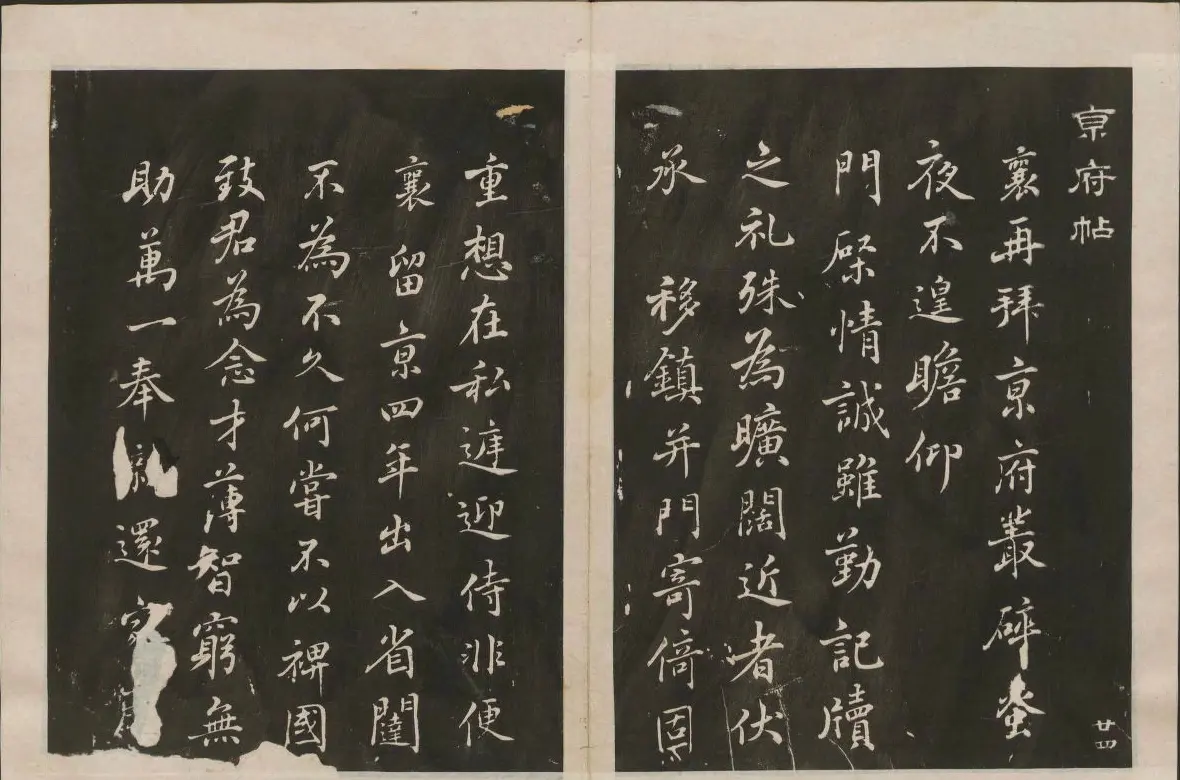 亰府帖
襄再拜亰府叢碎蚤
廿四
夜不遑瞻仰
門棨情誠雖勤記牘
之礼殊為曠闊近者伏
承 移鎮并門寄倚固
重想在私遽迎侍非便
襄 留亰四年出入省闥
不為不久何嘗不以裨國
致君為念才薄智窮無
助萬一奉親還家